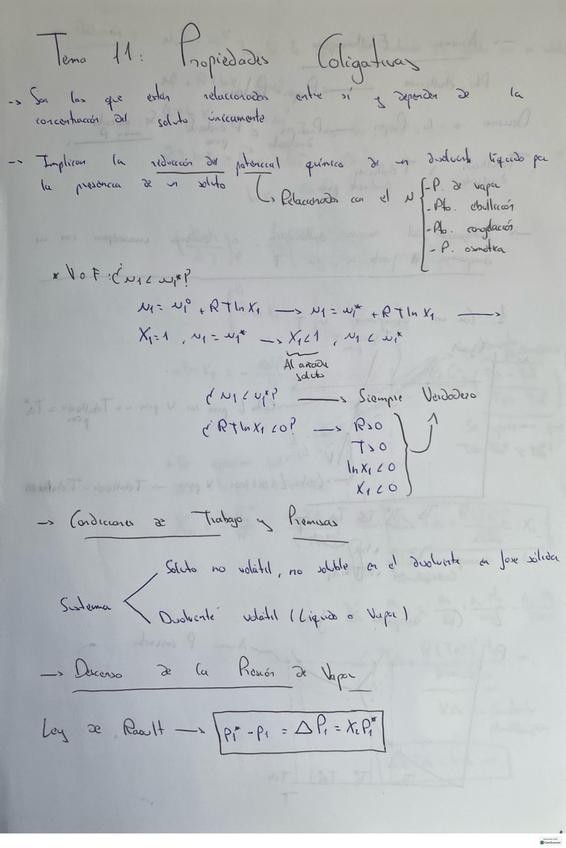 Tema 11: Propiedades Coligativas
→ Son las que están relacionadas entre sí y dependen de la
concentración del soluto únicamente
→ Implican la reducción del potencial químico de un disolvente líquido por
la presencia de un soluto
Relacionados con el N
- P. de vapor
- Pto. ebullición
- Pto. congelación
- P. osmótica
* V o F: ¿μ1 < μ1*?
μ1 = μ1° + RT ln X1 → μ1 = μ1* + RT ln X1 →
X1 = 1, μ1 = μ1* → X1 < 1, μ1 < μ1*
Al añadir
soluto
¿μ1 < μ1*? → Siempre Verdadero
¿RT ln X1 < 0? → R > 0
T > 0
ln X1 < 0
X1 < 0
→ Condiciones de Trabajo y Premisas
Sistema
Soluto no volátil, no soluble en el disolvente en fase sólida
Disolvente volátil (Líquido o Vapor)
→ Descenso de la Presión de Vapor
Ley de Raoult → P1* - P1 = ΔP1 = X2 P1*